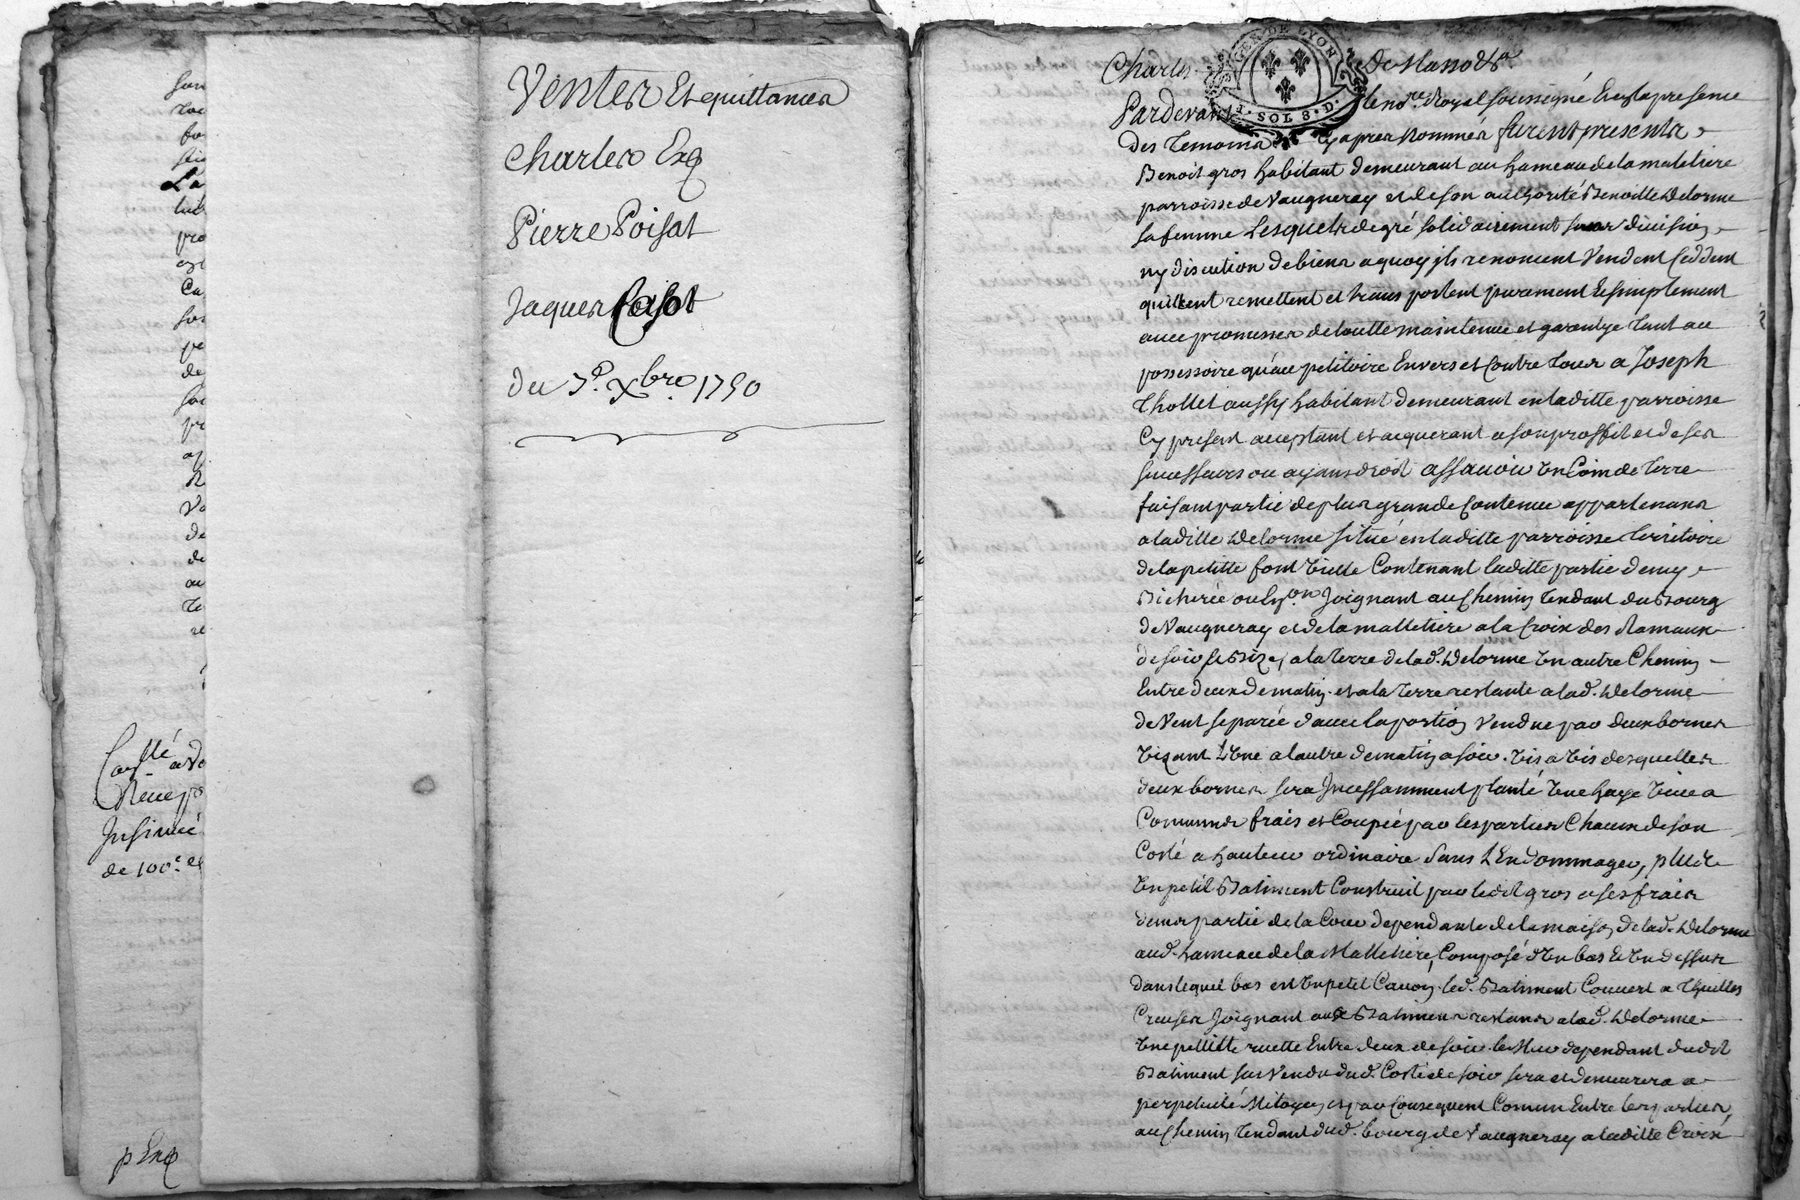 Ventes Et quittances
Charles Exp
Pierre Poisat
Jaques Poisat
du 7e. Xbre. 1750
son
fo
La
pro
Ca
son
pe
de
pr
ap
Va
de
de
au
re
Insinué
de 100e. et
p Exp
GEN DE LYON
SOL 8. D.
Charles
Pardevant le nore. Royal soussigné Et en la presence
Des Temoins Cy apres Nommés furent presents
Benoit gros habitant demeurant au hameau de la maletiere
parroisse de Vaugneray et de son authorité Benoitte Delorme
sa femme Lesquels de gré solidairement sans division
ny discution de biens a quoy ils renoncent Vendent Ceddent
quittent remettent et transportent purement Et simplement
avec promesses de toutte maintenue et garentye tant au
possessoire qu'au petitoire Envers et Contre tous a Joseph
Thollet aussy habitant demeurant en laditte parroisse
Cy present acceptant et acquerant a son proffit et de ses
successeurs ou ayans droit assavoir Un Coin de Terre
faisant partie de plus grande Contenue appartenant
a laditte Delorme situé en laditte parroisse territoire
de la petitte font Vielle Contenant laditte partie demy
Bicherée ou Eyon Joignant au Chemin tendant du Bourg
de Vaugneray et de la malletiere a la Croix des Rameaux
de soir & Bize, a la terre de lad. Delorme Un autre Chemin
Entre deux de matin et a la terre restante a lad. Delorme
de Vent separée d'avec la portion Vendue par deux bornes
Vizant L'Une a l'autre de matin a soir. Vis a Vis desquelles
deux bornes sera Incessamment planté Une haye Vive a
Communs frais et Coupée par les parties Chacun de son
Costé a hauteur ordinaire sans L'Endommager, plus
Un petit Batiment Construit par ledit gros a ses frais
dans partie de la Cour dependante de la maison de lad. Delorme
aud. hameau de la Malletiere, Composé d'Un bas & Un dessus
dans lequel bas est Un petit Cavon led. Batiment Couvert a Thuilles
Creuses Joignant aux Batimens restans a lad. Delorme
Une petitte ruette Entre deux de soir le Mur dependant dudit
Batiment sus Vendu dud. Costé de soir sera et demeurera a
perpetuité Mitoyen et par Consequent Comun Entre les parties,
au Chemin tendant dud. bourg de Vaugneray a laditte Croix